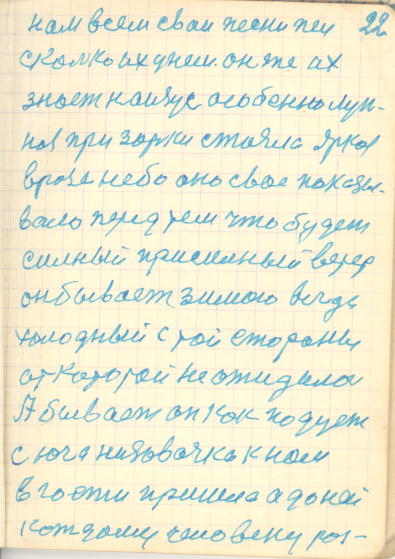 нам всем свои песни пел 22
сколко их у нем. он же их
знает наизус, особенно лун-
ноя при зорки стояла яркоя
в розе небо оно свое показы-
вало перед тем что будет
силный присилный ветер
он бывает зимою везде
холодный с той стораны
от каторой не ожидалои
А бывает он как подует
с юга низовачка к нам
в гости пришла а до ней
каждому человеку роз-